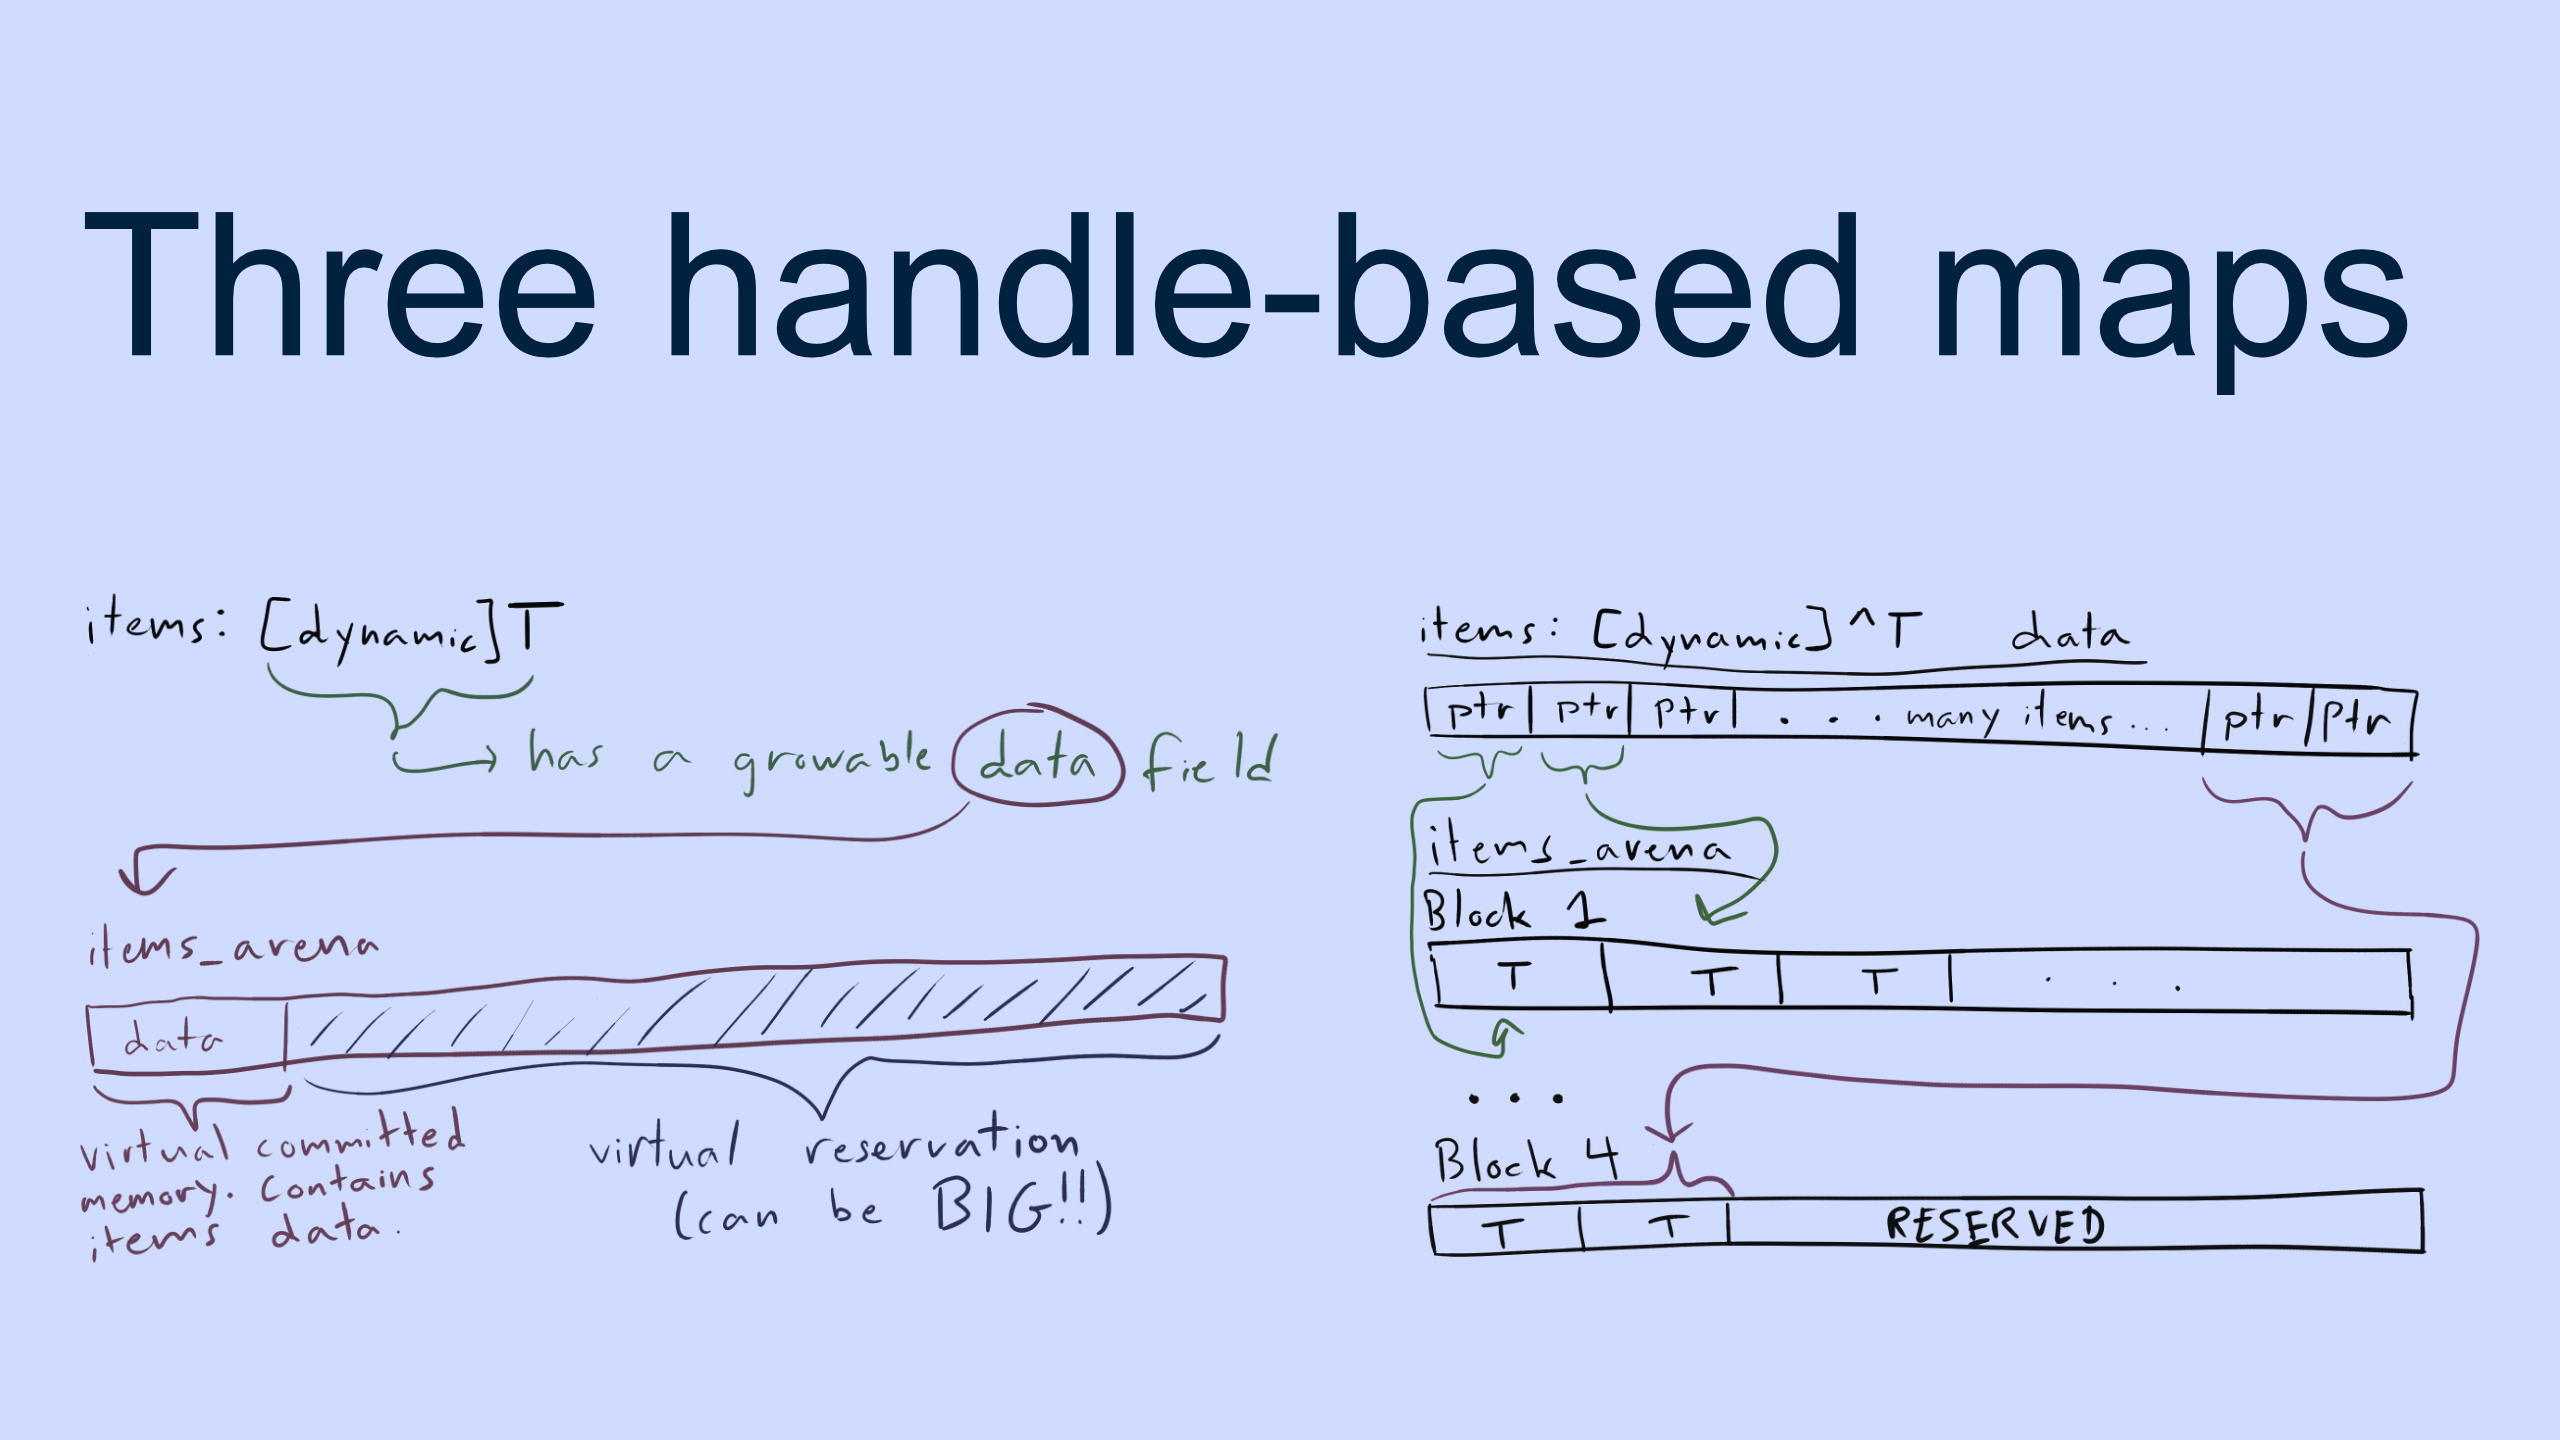 Three handle-based maps
items: [dynamic]T
has a growable data field
items_arena
data
virtual committed
memory. Contains
items data.
virtual reservation
(can be BIG!!)
items: [dynamic]^T data
ptr ptr ptr . . . many items ... ptr ptr
items_arena
Block 1
T T T . . .
...
Block 4
T T RESERVED